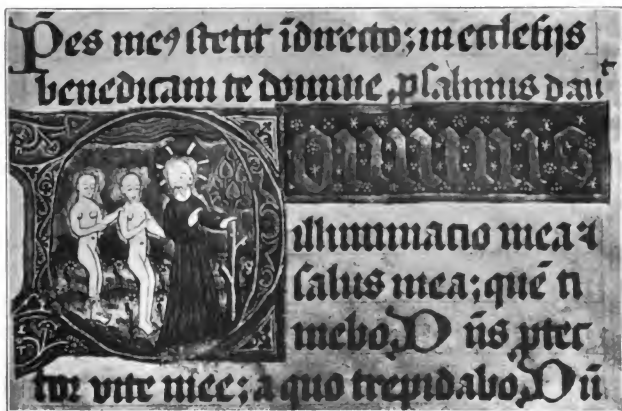 Pes me⁹ stetit ĩdirecto; in ecclesijs
benedicam te domine, psalmus dauᵗ
Dominus
illuminacio mea ⁊
salus mea; quē ti
mebo. Dn̄s ꝓtec
tor vite mee; a quo trepidabo. Dū